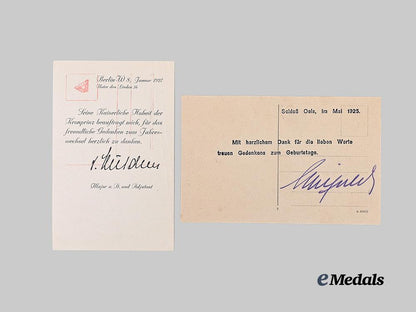 Berlin W 8, Januar 1937
Unter den Linden 36
Seine Kaiserliche Hoheit der
Kronprinz beauftragt mich, für das
freundliche Gedenken zum Jahres-
wechsel herzlich zu danken.
Major a. D. und Adjutant
Schloß Oels, im Mai 1925.
Mit herzlichem Dank für die lieben Worte
treuen Gedenkens zum Geburtstage.
eMedals